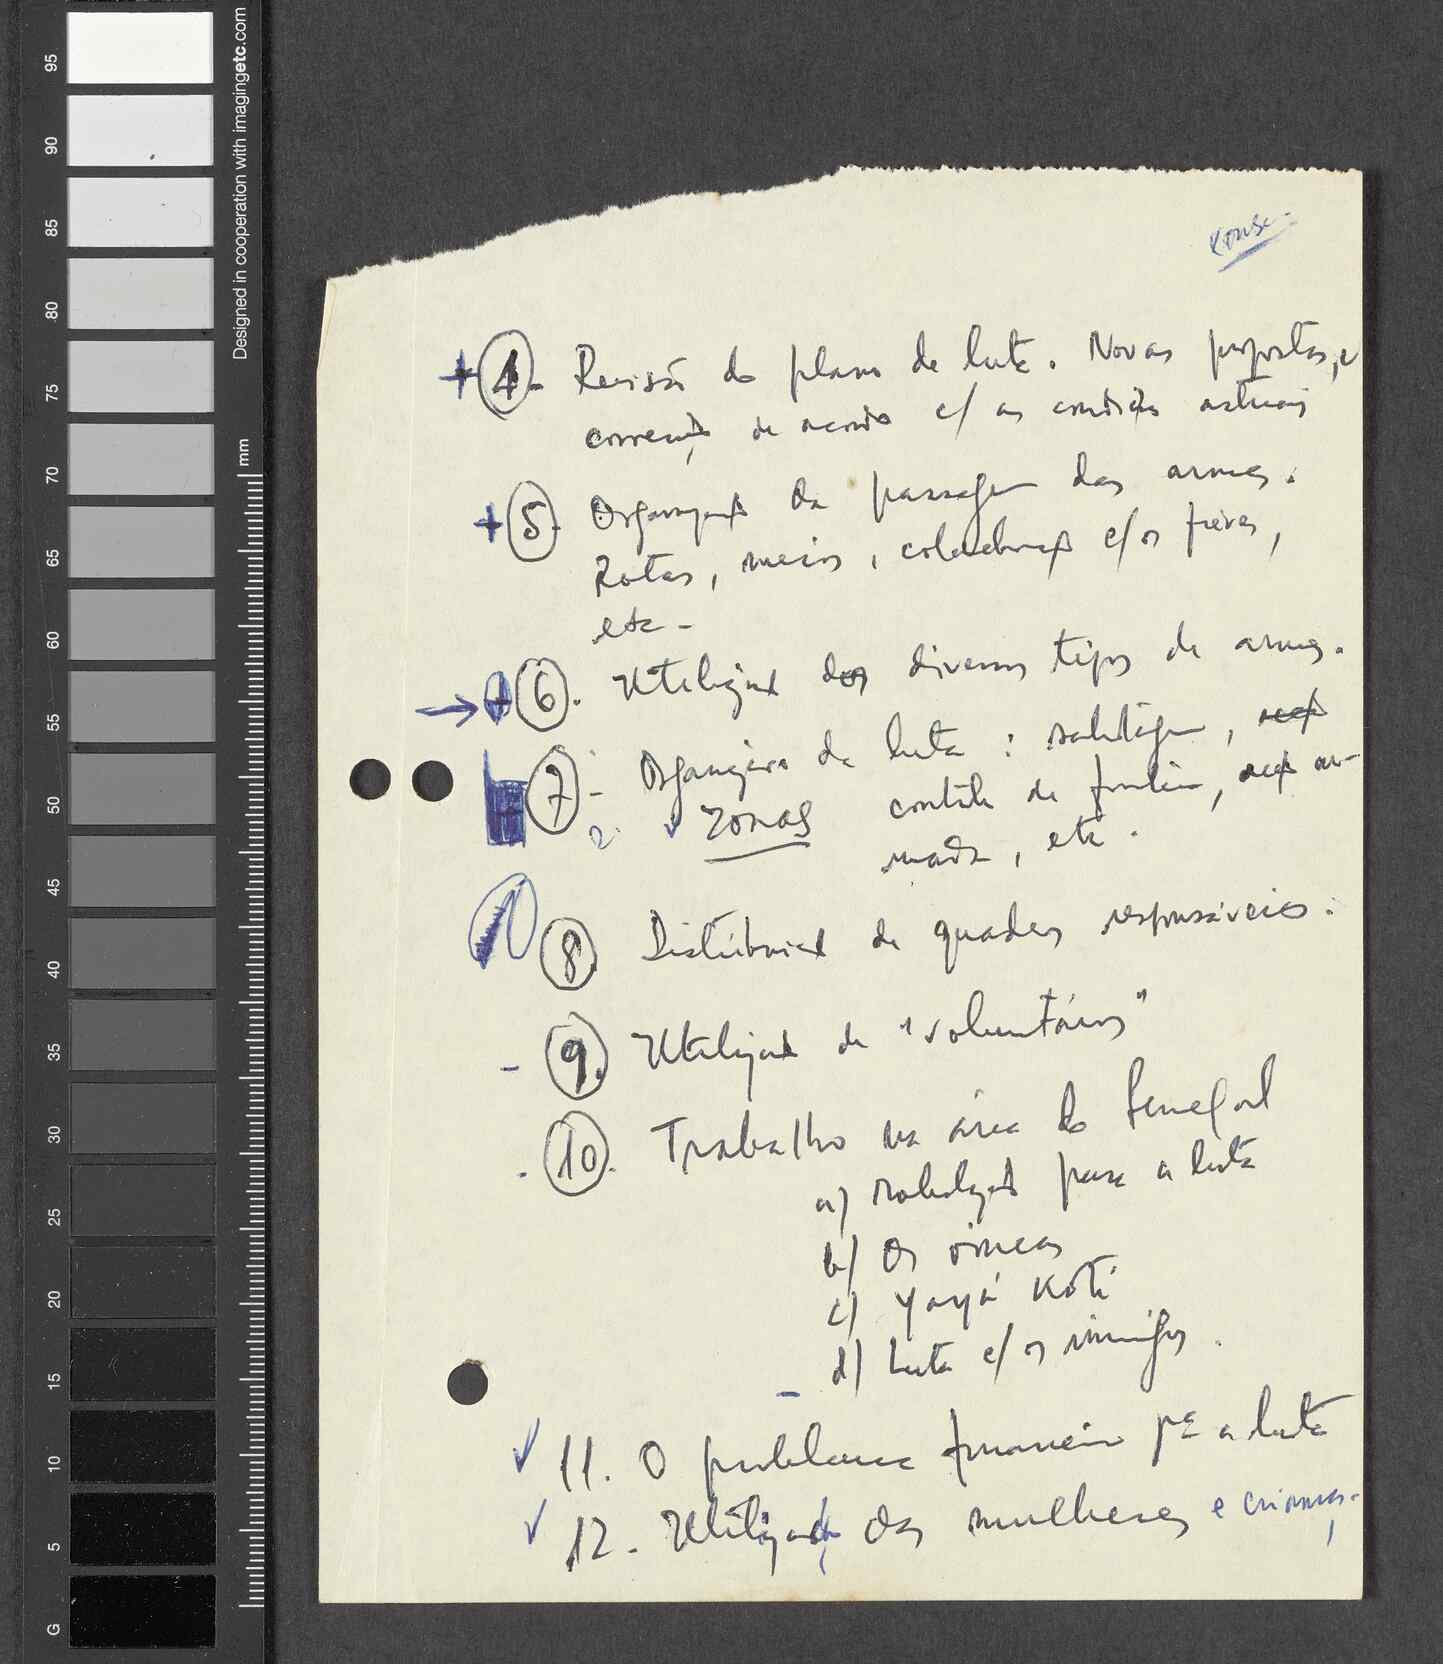 95
90
85
80
75
70
65
60
55
50
45
40
35
30
25
20
15
10
5
G
Designed in cooperation with imagingetc.com
mm
+ 4. Revisão do plano de luta. Novas propostas,
correcção de acordo c/ as condições actuais
+ 5. Organização da passagem das armas.
Rotas, meios, colaboração c/ os
etc -
→ + 6. Utilização dos diversos tipos de armas.
7 - Organização da luta: sabotagem,
2. ZONAS controle de fronteira, acção ar-
mada, etc.
8. Distribuição de quadros responsáveis.
- 9. Utilização de "voluntários"
10. Trabalho na área do Senegal
a) Mobilização para a luta
b) Os
c) Yayá Koté
d) Luta c/ os inimigos.
11. O problema financeiro pª a luta
12. Utilização das mulheres e crianças.